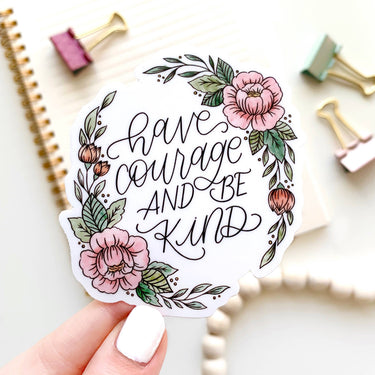 have
courage
AND BE
KIND